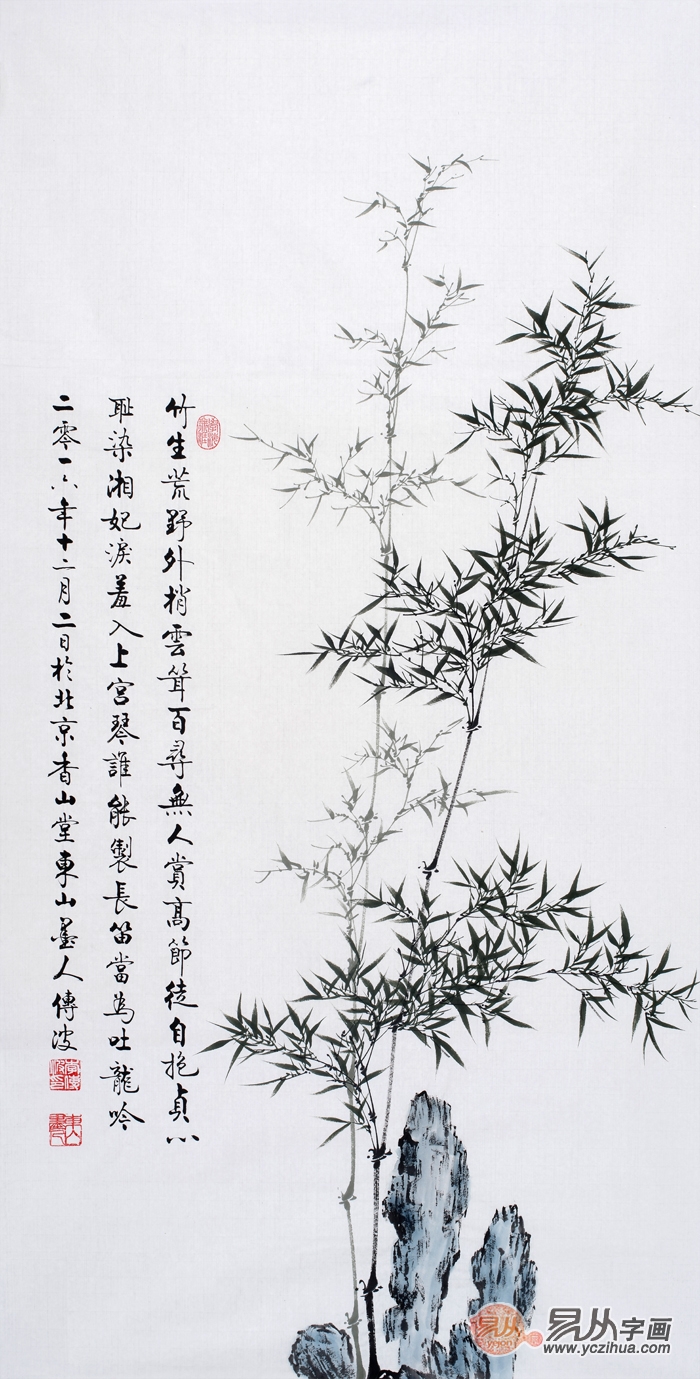 竹生荒野外梢雲耸百尋無人賞高節徒自抱貞心
耻染湘妃淚羞入上宮琴誰能製長笛當為吐龍吟
二零一六年十二月二日於北京香山堂東山墨人傳波
易从字画
www.yczihua.com